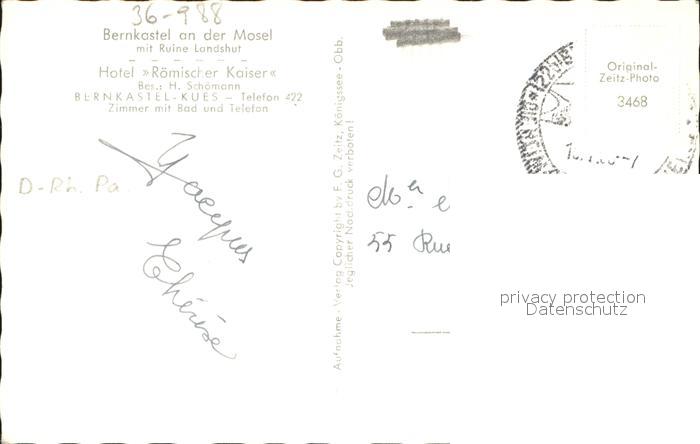 36-988
Bernkastel an der Mosel
mit Ruine Landshut
Hotel »Römischer Kaiser«
Bes.: H. Schömann
BERNKASTEL-KUES – Telefon 422
Zimmer mit Bad und Telefon
D-Rh. Pa.
Jacques
Thérèse
Aufnahme - Verlag Copyright by F. G. Zeitz, Königssee - Obb.
Jeglicher Nachdruck verboten!
Original-
Zeitz-Photo
3468
55 Rue
privacy protection
Datenschutz